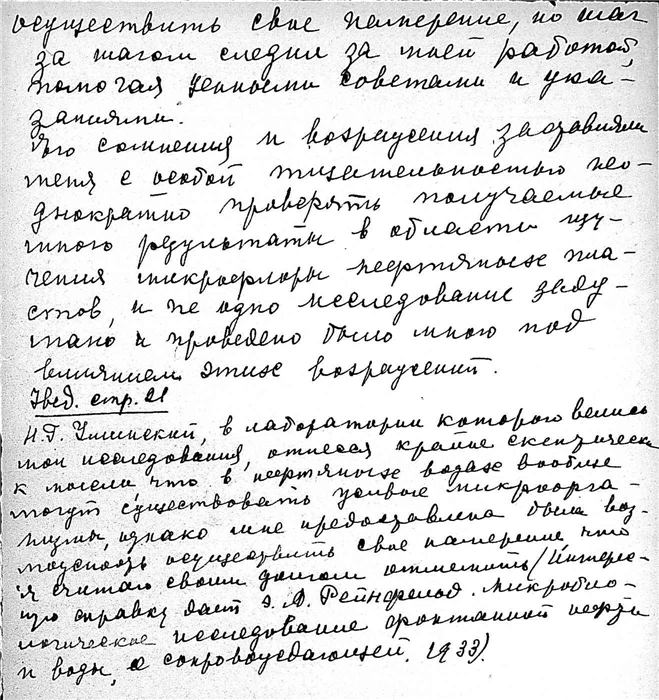 осуществить свое намерение, но шаг
за шагом следил за моей работой,
помогая ценными советами и ука-
заниями.
Его сомнения и возражения заставляли
меня с особой тщательностью нео-
днократно проверять получаемые
мною результаты в области изу-
чения микрофлоры нефтяных пла-
стов, и не одно исследование заду-
мано и проведено было мною под
влиянием этих возражений.
стр. 21
Н.Г. Ушинский, в лаборатории которого велись
мои исследования, отнесся крайне скептически
к мысли что в нефтяных водах вообще
могут существовать живые микроорга-
низмы, однако мне предоставлена была воз-
можность осуществить свое намерение что
я считаю своим долгом отметить /Интерес-
ную справку дает Э. А. Рейнфельд. Микробио-
логическое исследование фонтанной нефти
и воды, ее сопровождающей. 1933).